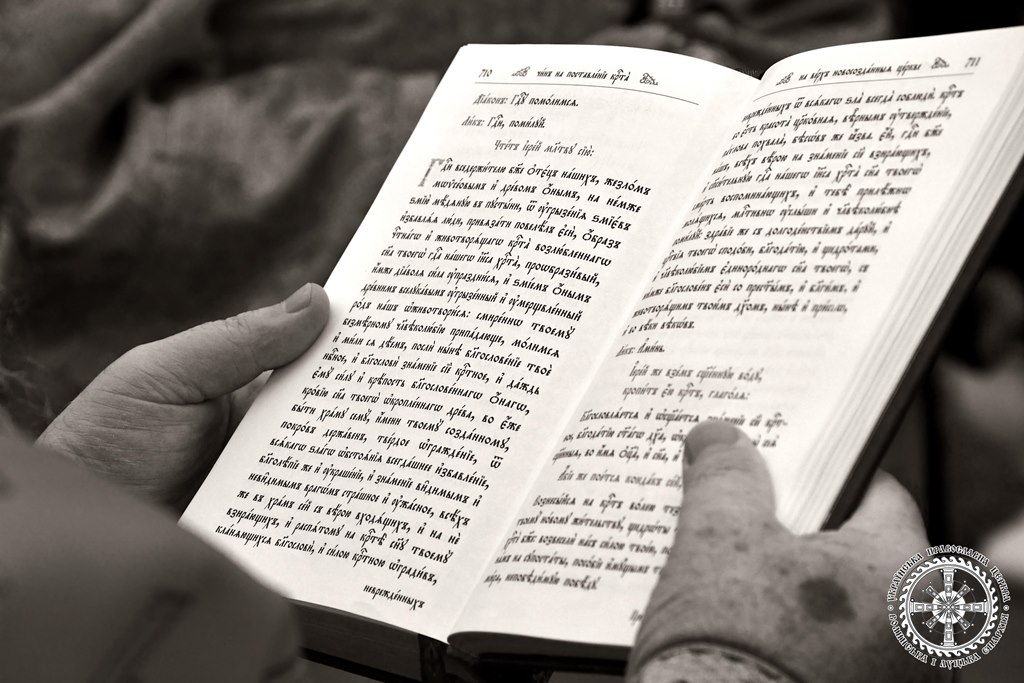 710
чи́нъ на поставле́нїе крⷭ҇та̀
Дїа́конъ: Гдⷭ҇ꙋ помо́лимсѧ.
Ли́къ: Гдⷭ҇и, поми́лꙋй.
Чте́тъ і҆ере́й мл҃твꙋ сїю̀:
Гдⷭ҇и вседержи́телю бж҃е ѻ҆тє́цъ на́шихъ, жезло́мъ
мѡѷсе́овымъ и҆ дре́вомъ ѻ҆́нымъ, на не́мже
ѕмі́ю мѣ́дѧнꙋю въ пꙋсты́ни, ѿ ᲂу҆грызе́нїѧ ѕмїє́въ
и҆збавлѧ́ѧ лю́ди, привѧза́ти повелѣ́лъ є҆сѝ, ѻ҆́бразъ
чⷭ҇тна́гѡ и҆ животворѧ́щагѡ крⷭ҇та̀ возлю́бленнагѡ
сн҃а твоегѡ̀ гдⷭ҇а на́шегѡ і҆и҃са хрⷭ҇та̀, проѡбрази́вый,
и҆́мже дїа́вола си́ла ᲂу҆праздни́сѧ, и҆ ѕмі́емъ ѻ҆́нымъ
дре́внимъ вселꙋка́вымъ ᲂу҆грызе́нный и҆ ᲂу҆мерщвле́нный
ро́дъ на́шъ ѡ҆животвори́сѧ: смире́ннѡ твоемꙋ̀
безмѣ́рномꙋ чл҃вѣколю́бїю припа́дающе, мо́лимсѧ
и҆ ми́ли сѧ дѣ́емъ, послѝ ны́нѣ бл҃гослове́нїе твоѐ
нбⷭ҇ное, и҆ бл҃гословѝ зна́менїе сїѐ крⷭ҇тное, и҆ да́ждь
є҆мꙋ̀ си́лꙋ и҆ крѣ́пость бл҃гослове́ннагѡ ѻ҆́нагѡ,
кро́вїю сн҃а твоегѡ̀ ѡ҆кропле́ннагѡ дре́ва, во є҆́же
бы́ти хра́мꙋ семꙋ̀, и҆́мени твоемꙋ̀ созда́нномꙋ,
покро́въ держа́венъ, тве́рдое ѡ҆гражде́нїе, ѿ
всѧ́кагѡ ѕла́гѡ ѡ҆бстоѧ́нїѧ всегда́шнее и҆збавле́нїе,
бл҃голѣ́пїе же и҆ ᲂу҆краше́нїе, и҆ зна́менїе ви̑димымъ и҆
неви̑димымъ врагѡ́мъ стра́шное и҆ ᲂу҆жа́сное, всѣ́хъ
же въ хра́мъ се́й съ вѣ́рою входѧ́щихъ, и҆ на не́
взира́ющихъ, и҆ распѧ́томꙋ на крⷭ҇тѣ̀ сн҃ꙋ твоемꙋ̀
кла́нѧющихсѧ бл҃гословѝ, и҆ си́лою крⷭ҇тною ѡ҆гради́въ,
невреждє́нныхъ
на ве́рхъ новосозда́нныѧ цр҃кве
711
ѿ всѧ́кагѡ ѕла̀ всегда̀ соблюдѝ. крⷭ҇тъ
красота̀ цр҃ко́внаѧ, вѣ̑рнымъ ᲂу҆твержде́нїе,
похвала̀, бѣсѡ́въ же ꙗ҆́зва.
вѣ́рою на зна́менїе сїѐ взира́ющихъ,
гдⷭ҇а на́шегѡ і҆и҃са хрⷭ҇та̀ сн҃а твоегѡ̀
воспомина́ющихъ, и҆ тебѣ̀ прилѣ́жнѡ
мл҃тивнѡ ᲂу҆слы́ши и҆ чл҃вѣколю́бнѣ
поми́лꙋй: здра́вїе же съ долгоде́нствїемъ да́рꙋй, и҆
твоегѡ̀ сподо́би, бл҃года́тїю, и҆ щедро́тами,
и҆ чл҃вѣколю́бїемъ є҆диноро́днагѡ сн҃а твоегѡ̀, съ
бл҃гослове́нъ є҆сѝ со прест҃ы́мъ, и҆ бл҃ги́мъ, и҆
животворѧ́щимъ твои́мъ дх҃омъ, ны́нѣ и҆ при́снѡ,
и҆ во вѣ́ки вѣкѡ́въ.
Ли́къ: А҆ми́нь.
І҆ере́й же взе́мъ сщ҃е́ннꙋю во́дꙋ,
кропи́тъ є҆́ю крⷭ҇тъ, глаго́лѧ:
Бл҃гословлѧ́етсѧ и҆ ѡ҆сщ҃а́етсѧ
бл҃года́тїю ст҃а́гѡ дх҃а,
во и҆́мѧ ѻ҆ц҃а̀, и҆ сн҃а,
Та́же пое́тсѧ конда́къ се́й,
Вознесы́йсѧ на крⷭ҇тъ во́лею
но́вомꙋ жи́тельствꙋ, щедрѡ́ты
хрⷭ҇тѐ бж҃е: возвеселѝ на́съ си́лою твое́ю,
на сопоста́ты, посо́бїе и҆мꙋ́щымъ
ми́ра, непобѣди́мꙋю побѣ́дꙋ.
УКРАЇНСЬКА ПРАВОСЛАВНА ЦЕРКВА
ВОЛИНСЬКА І ЛУЦЬКА ЄПАРХІЯ